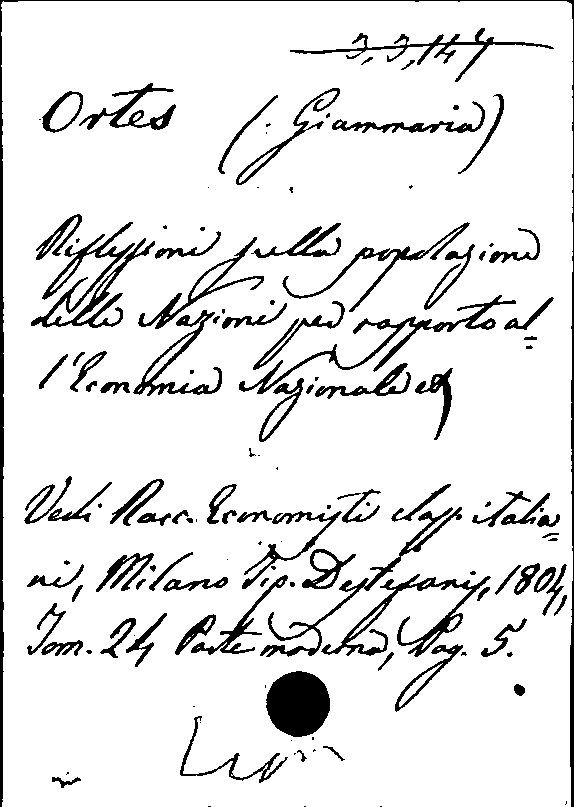 3,3,147
Ortes (: Giammaria)
Riflessioni sulla popolazione
delle Nazioni per rapporto al=
l'Economia Nazionale etc
Vedi Racc. Economisti class. italia=
ni, Milano Tip. Destefanis, 1804,
Tom. 24 Parte moderna, Pag. 5.